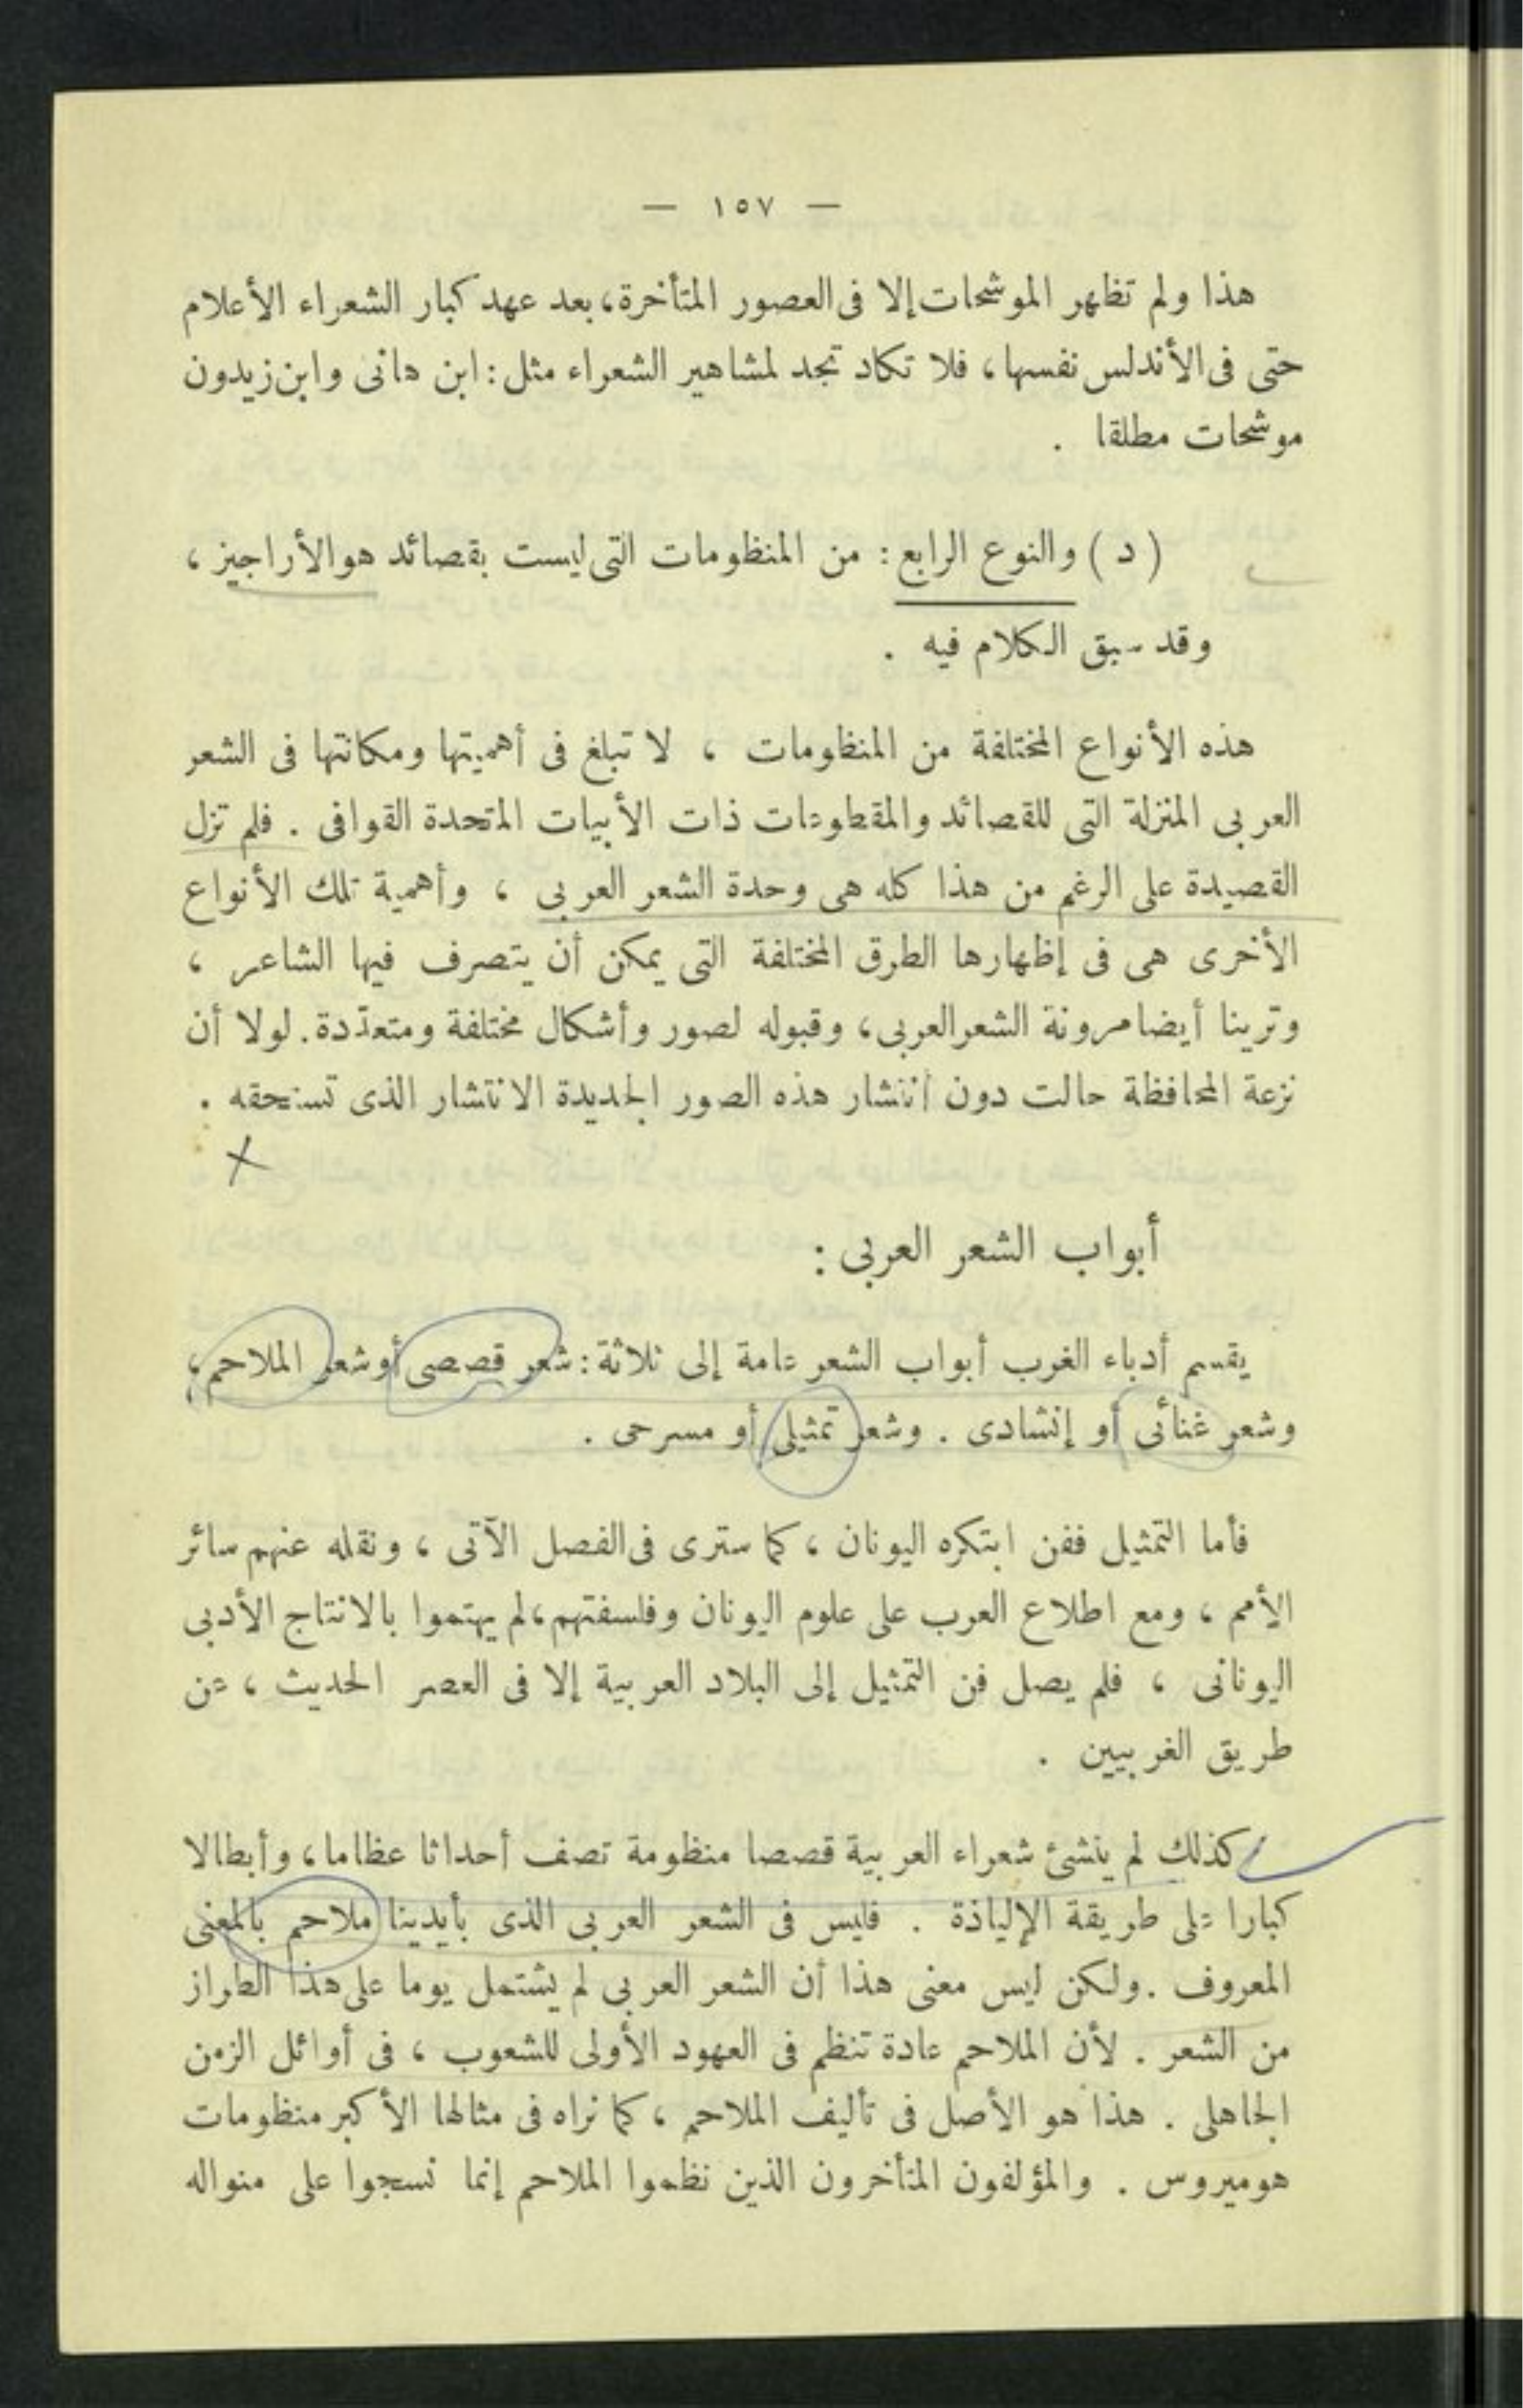 — ١٥٧ —
هذا ولم تظهر الموشحات إلا فى العصور المتأخرة، بعد عهد كبار الشعراء الأعلام
حتى فى الأندلس نفسها، فلا تكاد تجد لمشاهير الشعراء مثل: ابن هانى وابن زيدون
موشحات مطلقا .
( د ) والنوع الرابع : من المنظومات التى ليست بقصائد هو الأراجيز ،
وقد سبق الكلام فيه .
هذه الأنواع المختلفة من المنظومات ، لا تبلغ فى أهميتها ومكانتها فى الشعر
العربى المنزلة التى للقصائد والمقطوعات ذات الأبيات المتحدة القوافى . فلم تزل
القصيدة على الرغم من هذا كله هى وحدة الشعر العربى ، وأهمية تلك الأنواع
الأخرى هى فى إظهارها الطرق المختلفة التى يمكن أن يتصرف فيها الشاعر ،
وترينا أيضا مرونة الشعر العربى، وقبوله لصور وأشكال مختلفة ومتعدّدة. لولا أن
نزعة المحافظة حالت دون انتشار هذه الصور الجديدة الانتشار الذى تستحقه .
أبواب الشعر العربى :
يقسم أدباء الغرب أبواب الشعر عامة إلى ثلاثة: شعر قصصى أو شعر الملاحم،
وشعر غنائى أو إنشادى . وشعر تمثيلى أو مسرحى .
فأما التمثيل ففن ابتكره اليونان ، كما سترى فى الفصل الآتى ، ونقله عنهم سائر
الأمم ، ومع اطلاع العرب على علوم اليونان وفلسفتهم، لم يهتموا بالانتاج الأدبى
اليونانى ، فلم يصل فن التمثيل إلى البلاد العربية إلا فى العصر الحديث ، عن
طريق الغربيين .
كذلك لم ينشئ شعراء العربية قصصا منظومة تصف أحداثا عظاما، وأبطالا
كبارا على طريقة الإلياذة . فليس فى الشعر العربى الذى بأيدينا ملاحم بالمعنى
المعروف . ولكن ليس معنى هذا أن الشعر العربى لم يشتمل يوما على هذا الطراز
من الشعر . لأن الملاحم عادة تنظم فى العهود الأولى للشعوب ، فى أوائل الزمن
الجاهلى . هذا هو الأصل فى تأليف الملاحم ، كما نراه فى مثالها الأكبر منظومات
هوميروس . والمؤلفون المتأخرون الذين نظموا الملاحم إنما نسجوا على منواله